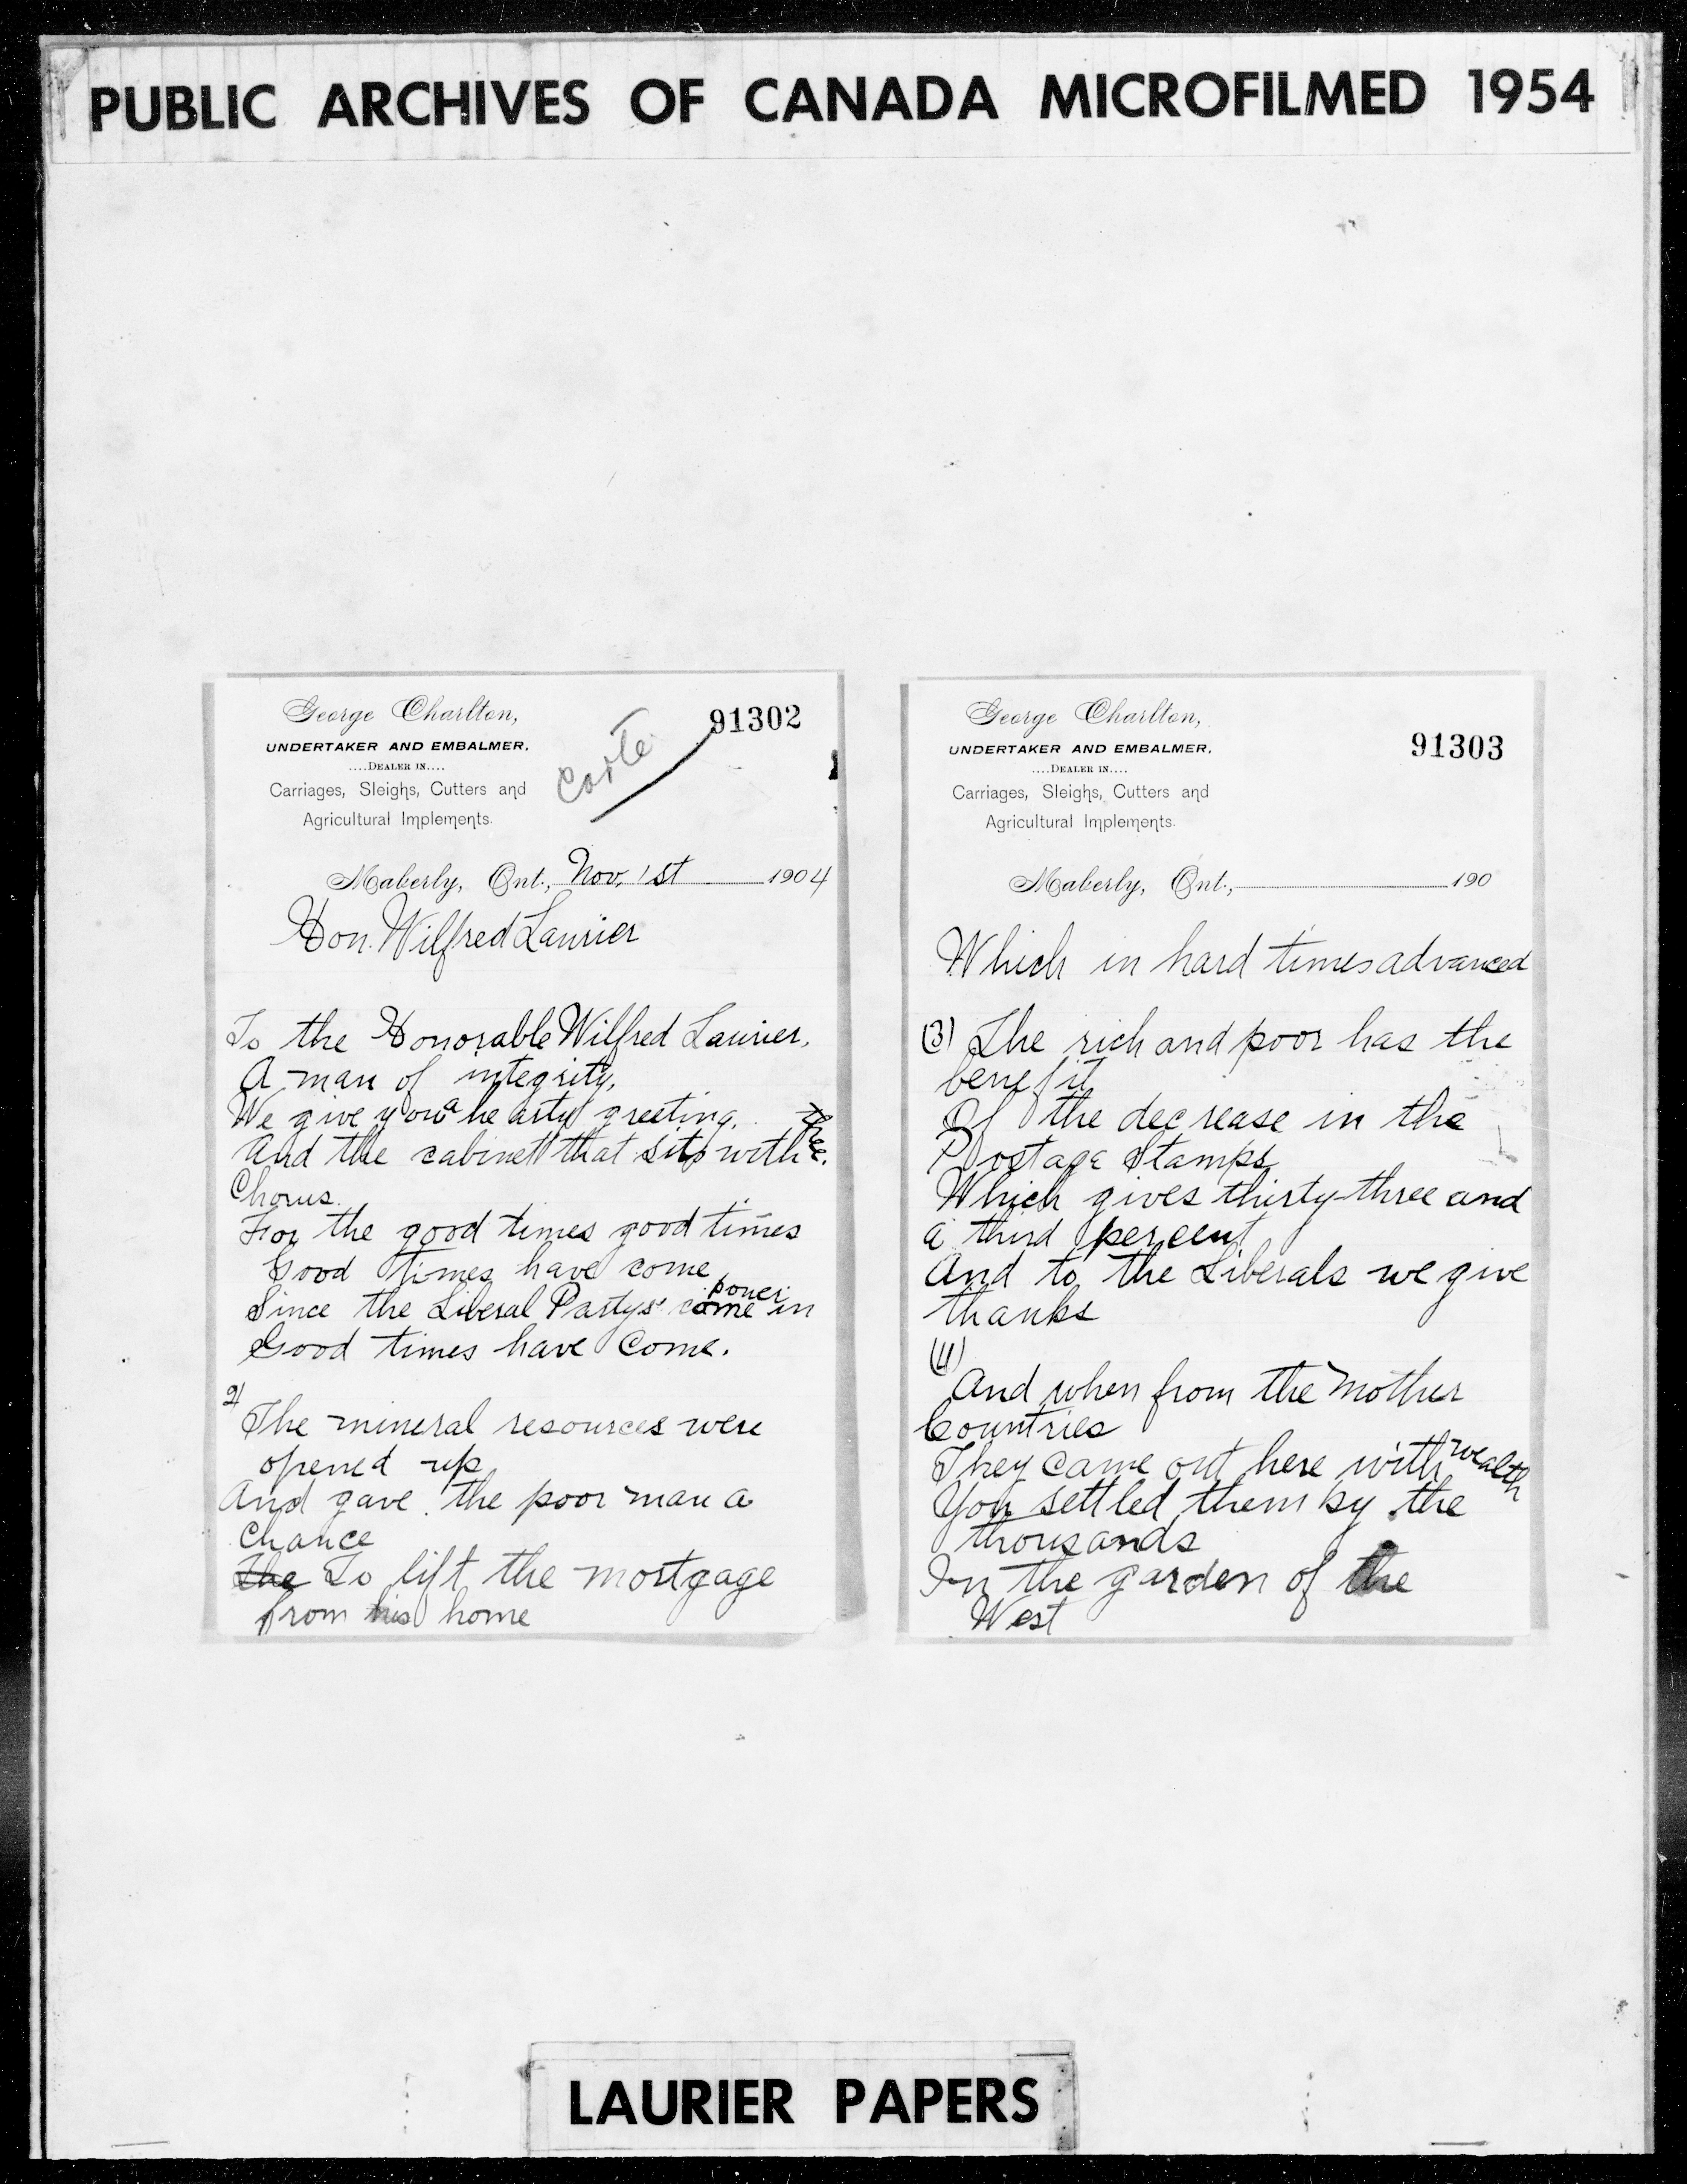 PUBLIC ARCHIVES OF CANADA MICROFILMED 1954
George Charlton,
UNDERTAKER AND EMBALMER.
....DEALER IN....
Carriages, Sleighs, Cutters and
Agricultural Implements.
Carte
91302
Maberly, Ont., Nov. 1st 1904
Hon. Wilfred Laurier
To the Honorable Wilfred Laurier,
A man of integrity,
We give you a hearty greeting,
And the cabinet that sits with thee.
Chorus.
For the good times good times
Good times have come
Since the Liberal Partys come in power
Good times have Come.
2)
The mineral resources were
opened up
And gave the poor man a
Chance
The To lift the mortgage
from his home
George Charlton,
UNDERTAKER AND EMBALMER.
....DEALER IN....
Carriages, Sleighs, Cutters and
Agricultural Implements.
91303
Maberly, Ont., 190
Which in hard times advanced
(3) The rich and poor has the
benefit
Of the decrease in the
Postage Stamps
Which gives thirty-three and
a third percent
And to the Liberals we give
thanks
(4)
And when from the Mother
Countries
They came out here with wealth
You settled them by the
thousands
In the garden of the
West
LAURIER PAPERS